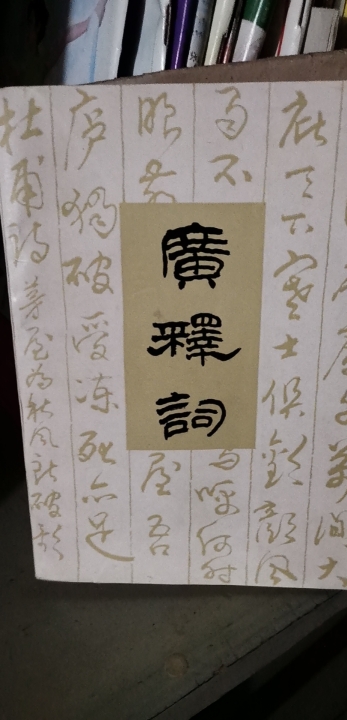 廣釋詞
間大
庇天下寒士俱歡顏風
雨不
嗚呼何时
眼前
屋吾
庐獨破受凍死亦足
杜甫詩茅屋為秋風所破歌